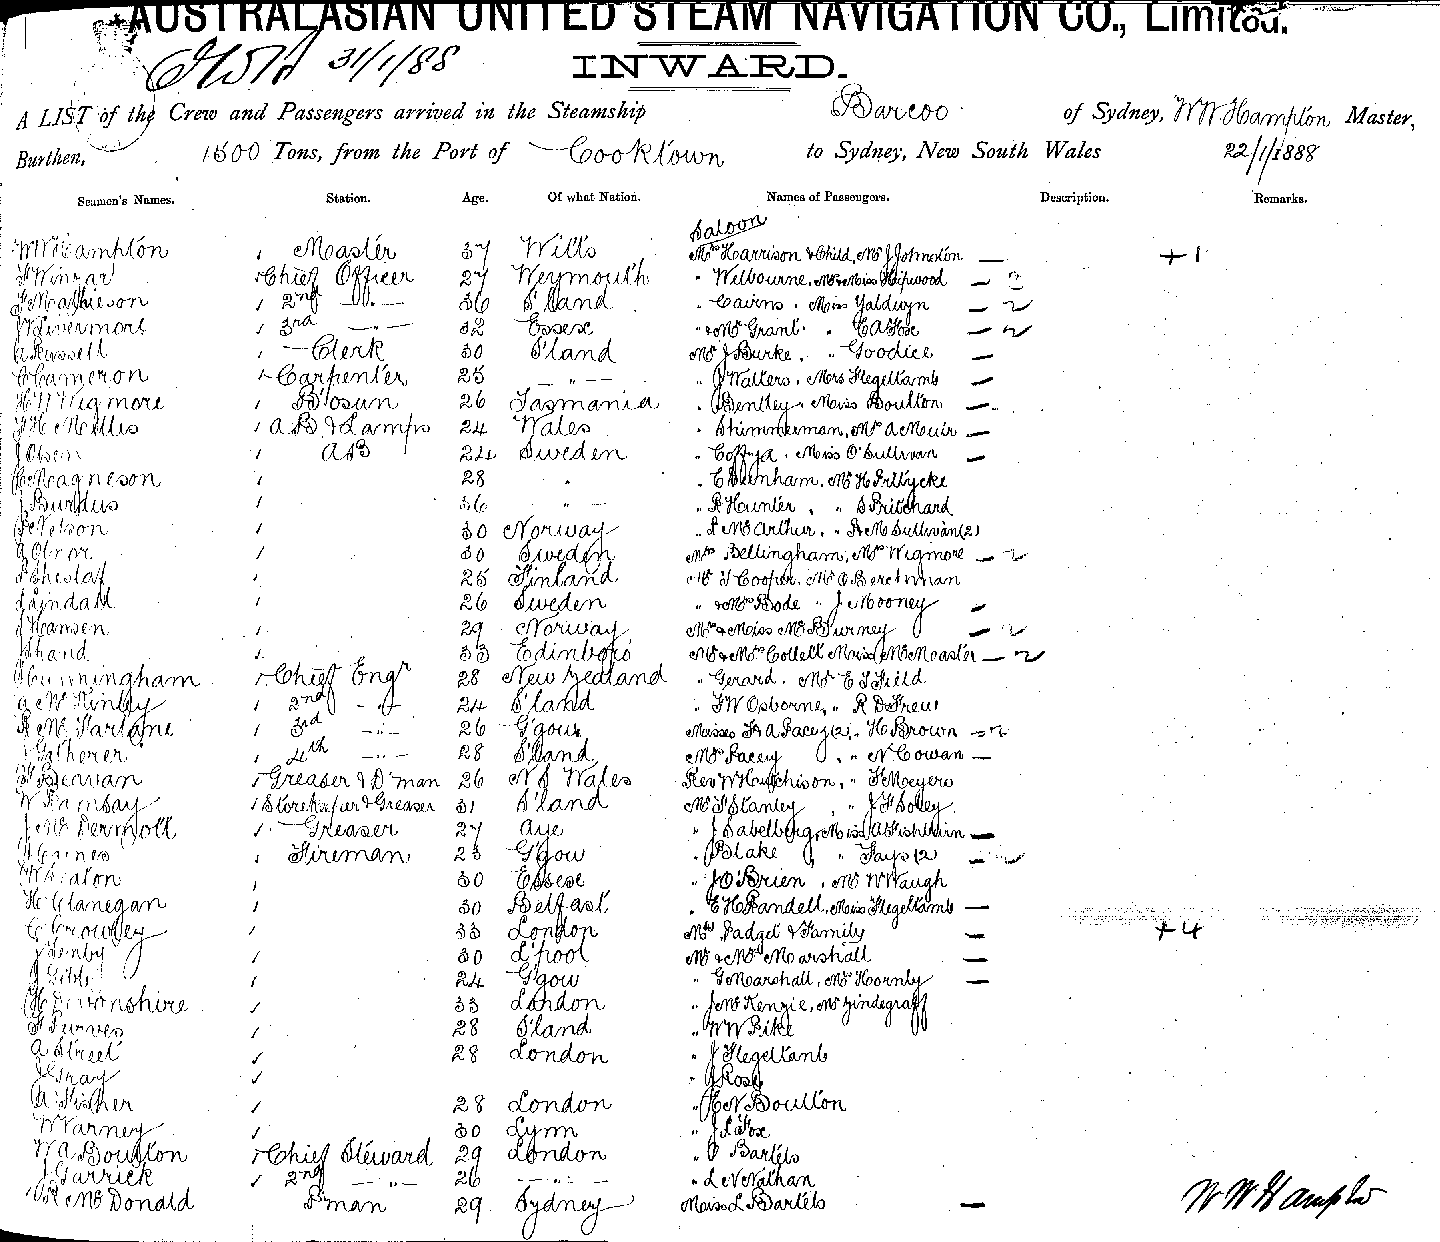 AUSTRALASIAN UNITED STEAM NAVIGATION CO., Limited.
31/1/88
INWARD.
A LIST of the Crew and Passengers arrived in the Steamship Barcoo of Sydney, W W Hampton Master,
Burthen, 1500 Tons, from the Port of Cooktown to Sydney, New South Wales 22/1/1888
Seamen's Names. Station. Age. Of what Nation. Names of Passengers. Description. Remarks.
Saloon
W W Hampton Master 37 Wilts Mrs Harrison & Child, Mr J Johnston — +1
F Winzar Chief Officer 27 Weymouth " Welbourne, Mr & Miss Hipwood — 3
J Mathieson 2nd — " — 36 S'land " Cairns. Miss Yaldwyn — 2
W Livermore 3rd — " — 32 Essex " & Mrs Grant. " E A Fox — 2
A Russell Clerk 30 S'land Mr J Burke. " Goodice —
C Cameron Carpenter 25 — " — " J Walters. Mrs Flegeltamb —
H W Wigmore Bosun 26 Tasmania " J Bentley " Miss Boulton —
F H Mellis AB & Lamps 24 Wales " Shimmerman, Mr A Muir —
J Olsen AB 24 Sweden " Coffya. Miss O'Sullivan —
C Magneson 28 " " C Denham, Mr H Pribycke
J Burdus 36 " — " R Hunter, " S Pritchard
P Nelson 30 Norway " L McArthur. " H M Sullivan (2)
30 Sweden Mrs Bellingham, Mrs Wigmore — 2
25 Finland Mr T Cooper. Mr O Berchman
J Lindall 26 Sweden " & Mrs Bode " J Mooney —
J Hansen 29 Norway Mrs & Miss McBurney — 2
Shand 33 Edinboro Mr & Mrs Collett Miss McMaster — 2
J Cunningham Chief Engr 28 New Zealand " Gerard. Mr E J Field
A McKinley 2nd — " 24 S'land " F W Osborne, " R D Frew
R McFarlane 3rd — " — 26 G'gow Misses F & A Pacey (2), " H Brown — 2
J Gatherer 4th — " — 28 S'land Mrs Pacey, " N Cowan —
F Bervan Greaser & D'man 26 N S Wales Rev W Hutchison, " F Meyers
W Ramsay Storekeeper & Greaser 31 S'land Mr T Stanley, " J F Boley
J McDermott Greaser 27 Aye " J Sabelberg, Miss A Fishbuin —
H Caines Fireman 23 G'gow " J Blake, " Fays (2 — 2
W Heaton 30 Essex " J O'Brien, Mr W Waugh
H Clanegan 30 Belfast " E H Randell, Miss Flegeltamb —
C Crowley 33 London Mrs Padget & Family — +4
J Lenby 30 L'pool Mr & Mrs Marshall —
J Gibb 24 G'gow " G Marshall, Mrs Hornby —
H Devonshire 33 London " J McKenzie, Mr Zindegraff
F Purves 28 S'land " W W Pike
A Street 28 London " J Flegeltamb
J Gray " J Rose
A Fisher 28 London " E N Boulton
W Varney 30 Lynn " J L Fox
W A Boulton Chief Steward 29 London " O Bartels
J Garrick 2nd — " — 26 — " — " L V Nathan
McDonald P'man 29 Sydney Miss L Bartels —
W W Hampton